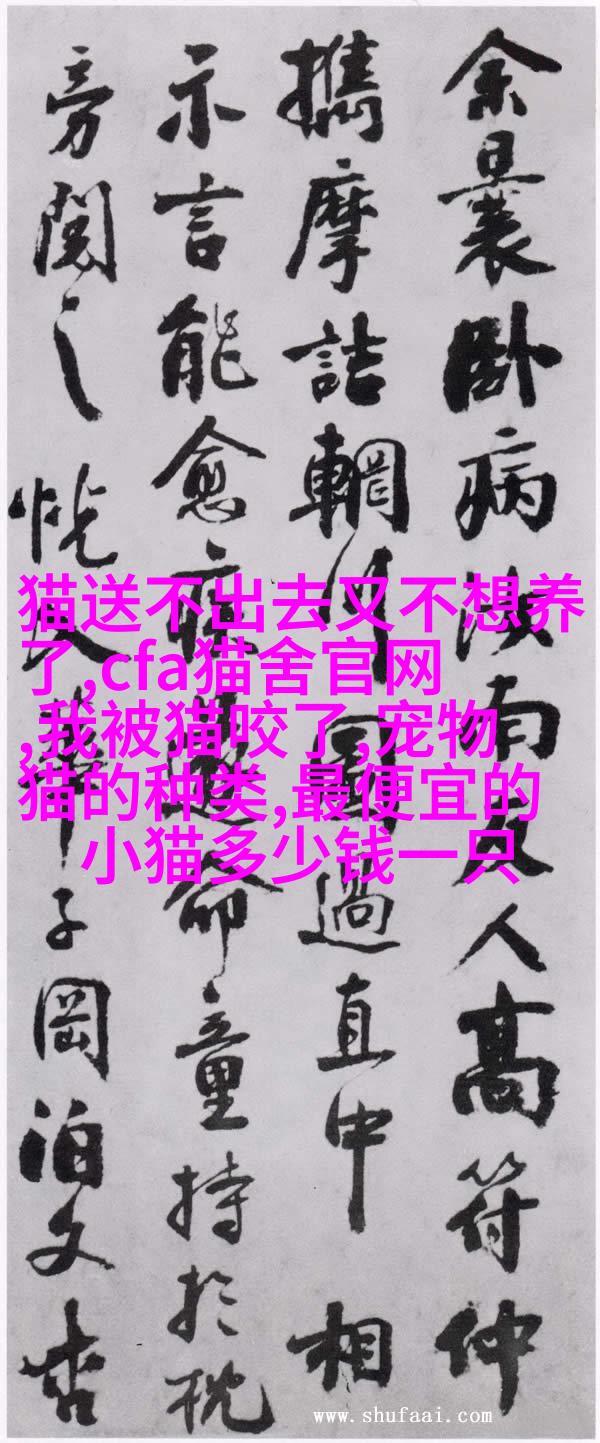 余曩卧病汝南友人高符仲
攜摩詰輞川圖過直中相
示言能愈疾遂命童持於枕
旁閱之恍入華子岡泊文杏
猫送不出去又不想养
了,cfa猫舍官网
,我被猫咬了,宠物
猫的种类,最便宜的
小猫多少钱一只
www.shufaai.com